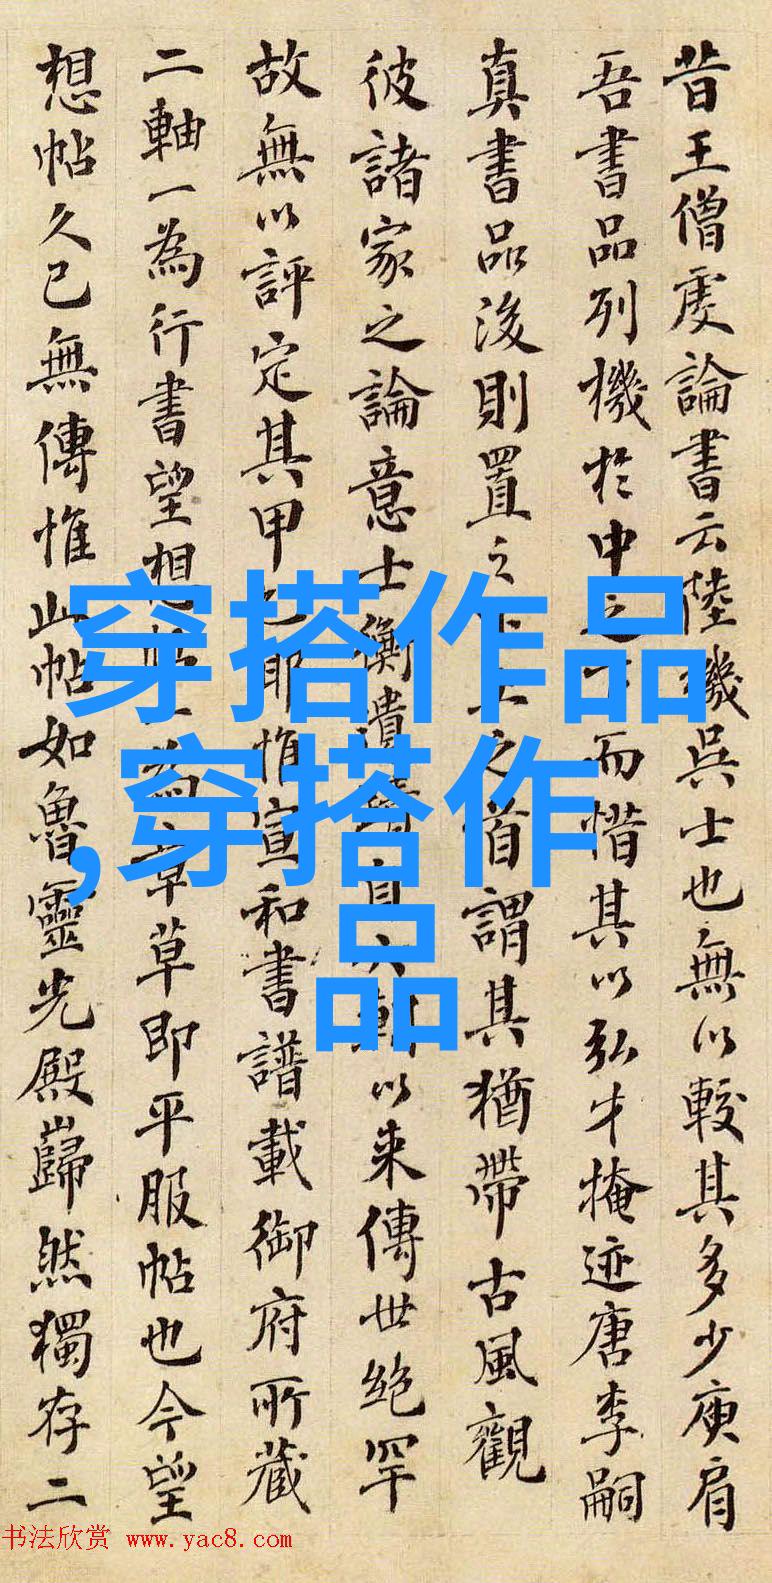 昔王僧虔論書云陸機吳士也無以較其多少庾肩
吾書品列機於中之下而惜其以弘才掩迹唐李嗣
真書品後則置之下上之首謂其猶帶古風觀
彼諸家之論意士衡遺蹟自六朝以來傳世絕罕
故無以評定其甲乙耶惟宣和書譜載御府所藏
二軸一為行書望想帖一為章草即平服帖也今望
想帖久已無傳惟此帖如魯靈光殿巋然獨存二
穿搭作品
,穿搭作
品
书法欣赏 www.yac8.com